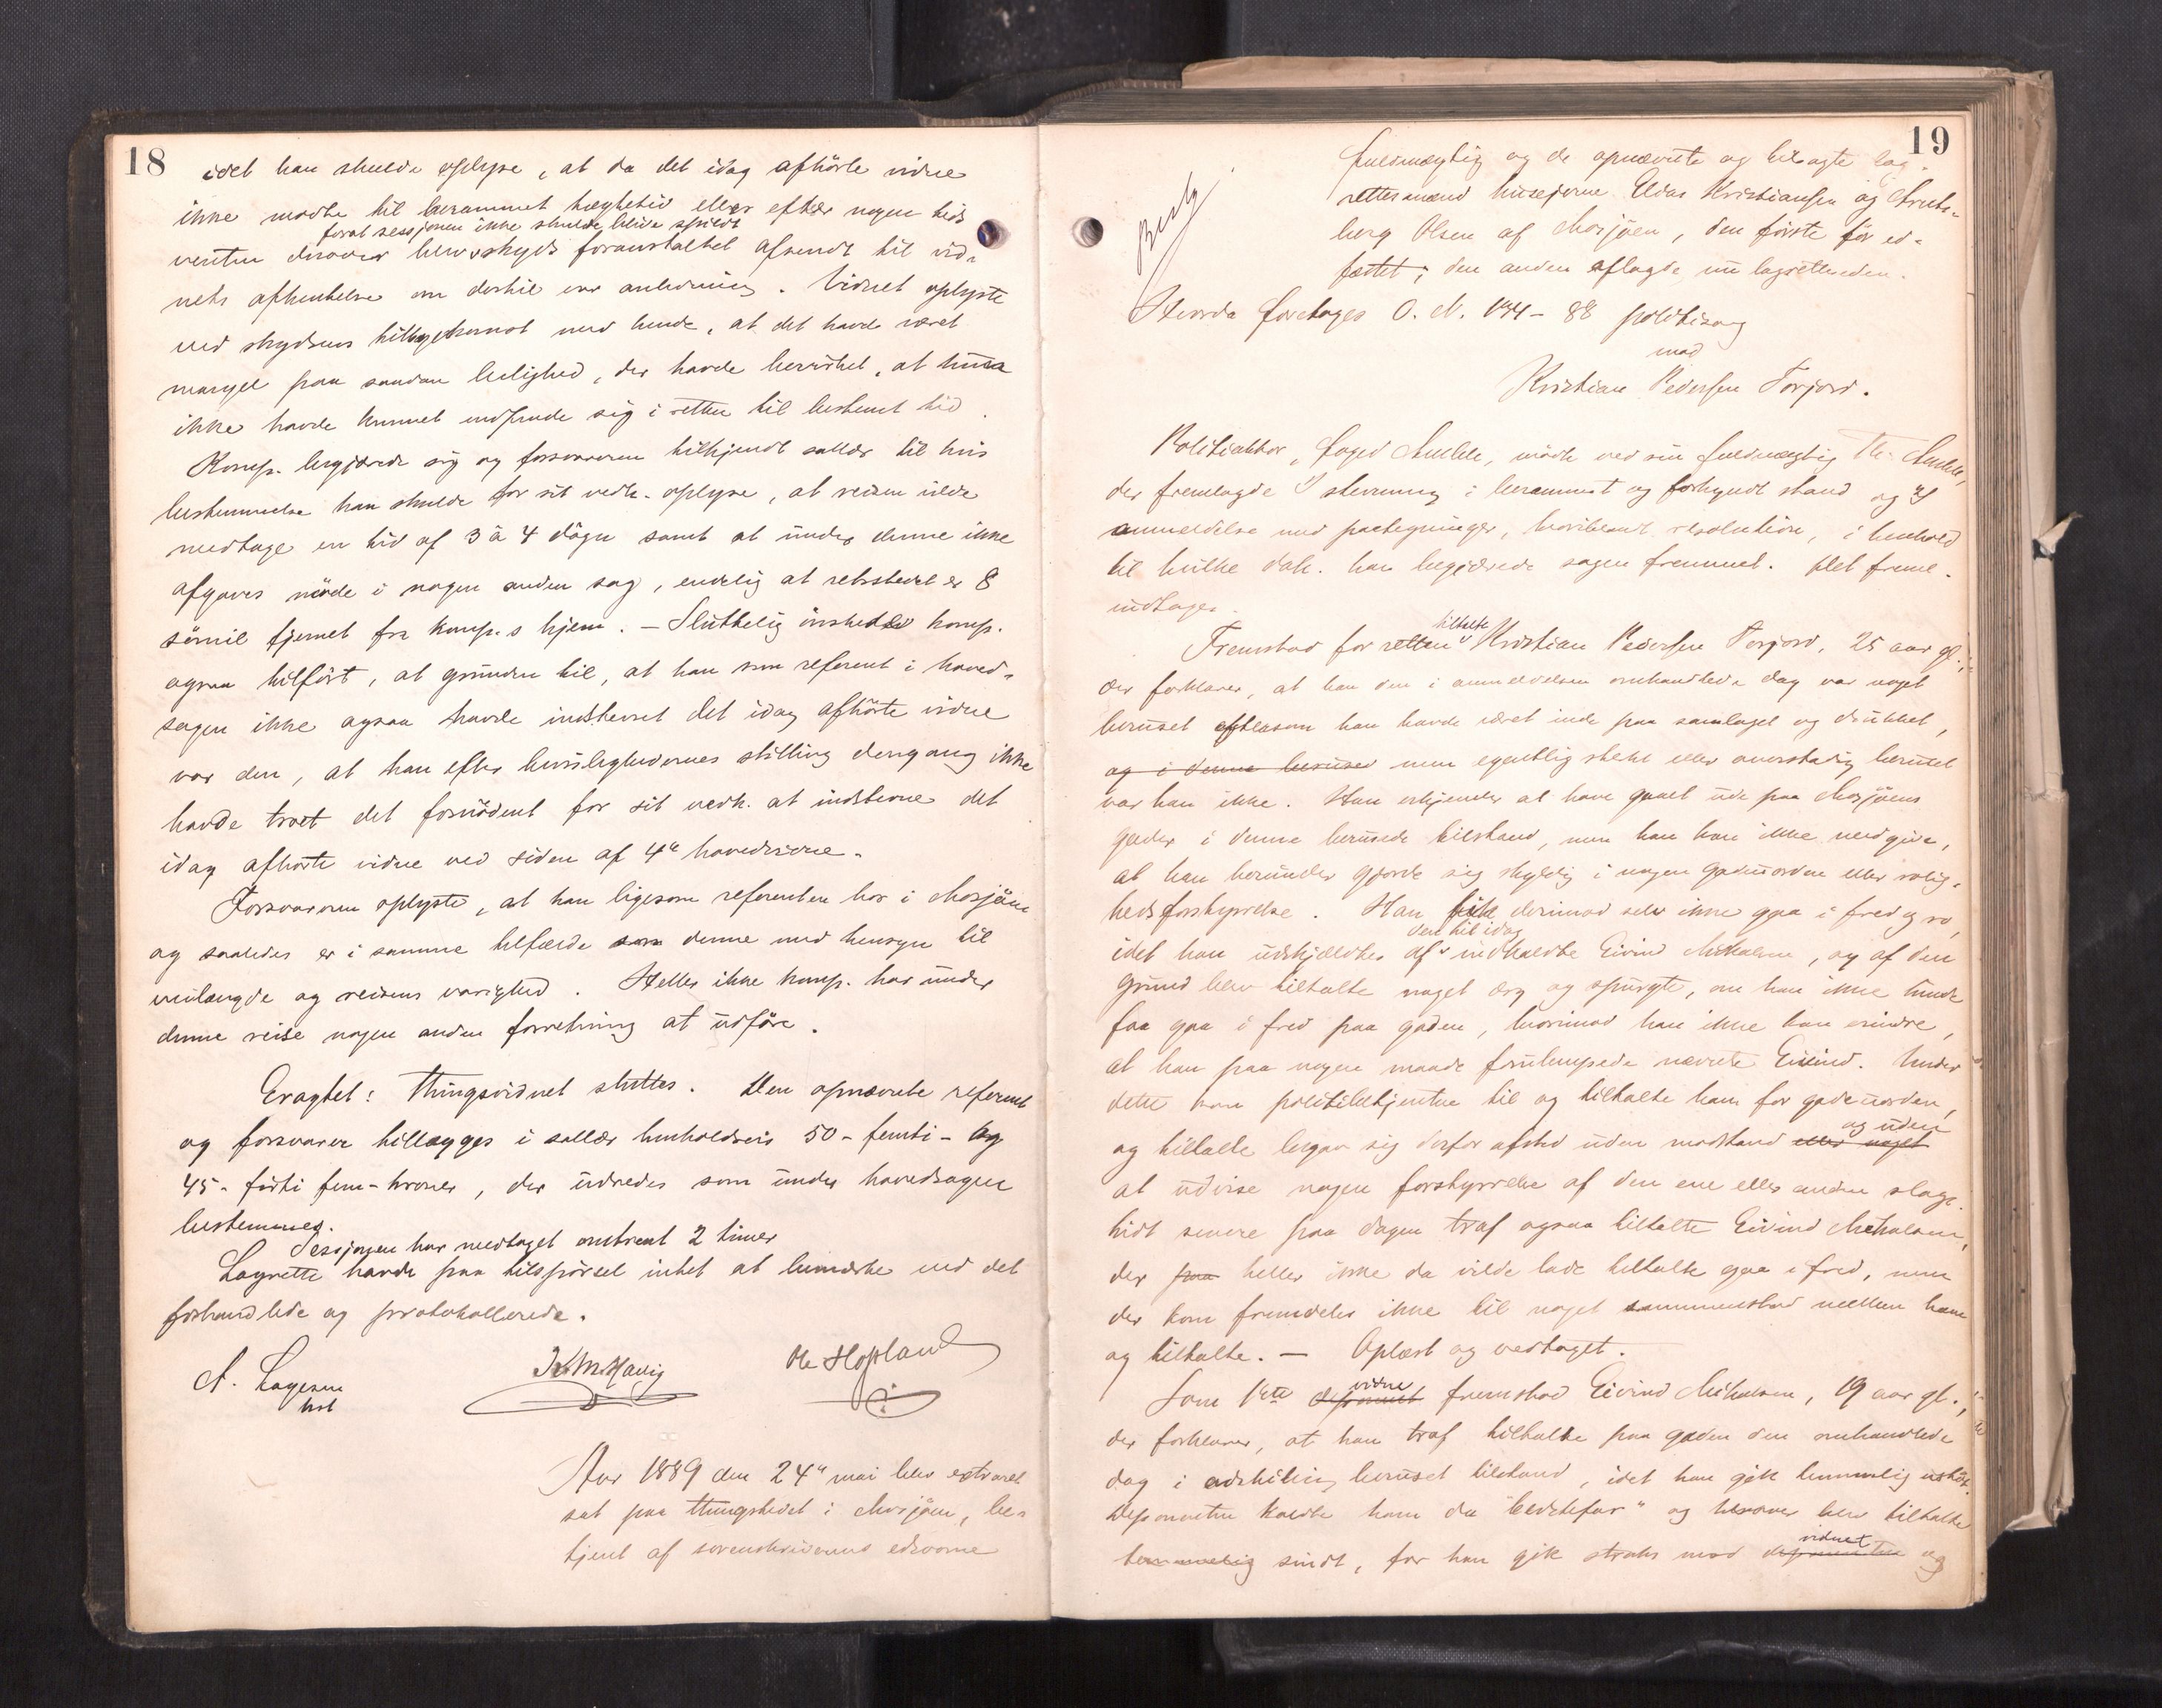 18
idet han skulde oplyse, at da det idag afhörte vidne
ikke mødte til berammet tægtetid eller efter nogen tids
forat sessjonen ikke skulde blive spildt
venten derover blev skyds foranstaltet afsendt til vid-
nets afhentelse om dertil var anledning. Vidnet oplyste
ved skydsens tilbagekomst med hende, at det havde været
mangel paa saadan leilighed, der havde bevirket, at hun
ikke havde kunnet indfinde sig i retten til bestemt tid.
Komp. begjærede sig og forsvareren tilkjendt sallær til hvis
bestemmelse han skulde for sit vedk. oplyse, at reisen vilde
medtage en tid af 3 à 4 dögn samt at under denne ikke
afgaves möde i nogen anden sag, endelig at retsstedet er 8
sömil fjernet fra komp.s hjem. - Sluttelig önskedes komp.
ogsaa tilfört, at grunden til, at han som referent i hoved-
sagen ikke ogsaa havde indstevnet det idag afhörte vidne
var den, at han efter bevislighedernes stilling dengang ikke
havde troet det fornödent for sit vedk. at indstevne det
idag afhörte vidne ved siden af 4de hovedvidne.
Forsvareren oplyste, at han ligesom referenten bor i Mosjöen
og saaledes er i samme tilfælde som denne med hensyn til
veilængde og reisens varighed. Heller ikke komp. har under
denne reise nogen anden forretning at udföre.
Eragtet: Thingsvidnet sluttes. Den opnævnte referent
og forsvarer tillægges i sallær henholdsvis 50 - femti - og
45 - förti fem - kroner, der udredes som under hovedsagen
bestemmes.
Sessjonen har medtaget omtrent 2 timer
Lagrette havde paa tilspörsel intet at bemærke ved det
forhandlede og protokollerede.
A. Lagesen
K M Havig
Ole Hopland
Aar 1889 den 24de mai blev extraret
sat paa thingstedet i Mosjöen, be-
tjent af sorenskriverens edsvorne
19
fuldmægtig og de opnævnte og tilsagte lag-
rettesmænd husejerne Elias Kristiansen og
berg Olsen af Mosjöen, den förste för ed-
fæstet; den anden aflagde nu lagretteeden.
Hvorda foretoges O. N. 144 - 88 politisag
mod
Kristian Pedersen Forjord.
Politiaktor, foged, mödte ved sin fuldmægtig Th.
der fremlagde 1) stevning i berammet og forkyndt stand og 2)
anmeldelse med paategninger, hvoriblandt resolution, i henhold
til hvilke dok. han begjærede sagen fremmet. Det fremL.
indtages.
tiltalte
Fremstod for retten Kristian Pedersen Forjord, 25 aar gl.,
der forklarer, at han den i anmeldelsen omhandlede dag var noget
beruset eftersom han havde været inde paa samlaget og drukket,
og i denne beruset men egentlig stekt eller overstadig beruset
var han ikke. Han erkjender at have gaaet ude paa Mosjöens
gader i denne berusede tilstand, men han kan ikke medgive,
at han herunder gjorde sig skyldig i nogen gadeuorden eller rolig-
hedsforstyrrelse. Han fik derimod selv ikke gaa i fred og ro,
den til idag
idet han udskjældtes af indkaldte Eivind Mikalsen, og af den
grund blev tiltalte noget arg og spurgte, om han ikke kunde
faa gaa i fred paa gaden, hvorimod han ikke kan erindre,
at han paa nogen maade forulempede nævnte Eivind. Under
dette kom politibetjenten til og tiltalte ham for gadeuorden,
og uden
og tiltalte begav sig derfor afsted uden modstand eller noget
at udvise nogen forstyrrelse af den ene eller anden slags.
Lidt senere paa dagen traf ogsaa tiltalte Eivind Mikalsen,
der paa heller ikke da vilde lade tiltalte gaa i fred, men
der kom fremdeles ikke til noget sammenstød mellem ham
og tiltalte. - Oplæst og vedtaget.
vidne
Som 1ste deponent fremstod Eivind Mikalsen, 19 aar gl.,
der forklarer, at han traf tiltalte paa gaden den omhandlede
dag i adskillig beruset tilstand, idet han gik temmelig ustöt.
Deponenten kaldte ham da "bedstefar" og herover blev tiltalte
vidnet
temmelig sindt, for han gik straks mod deponenten og